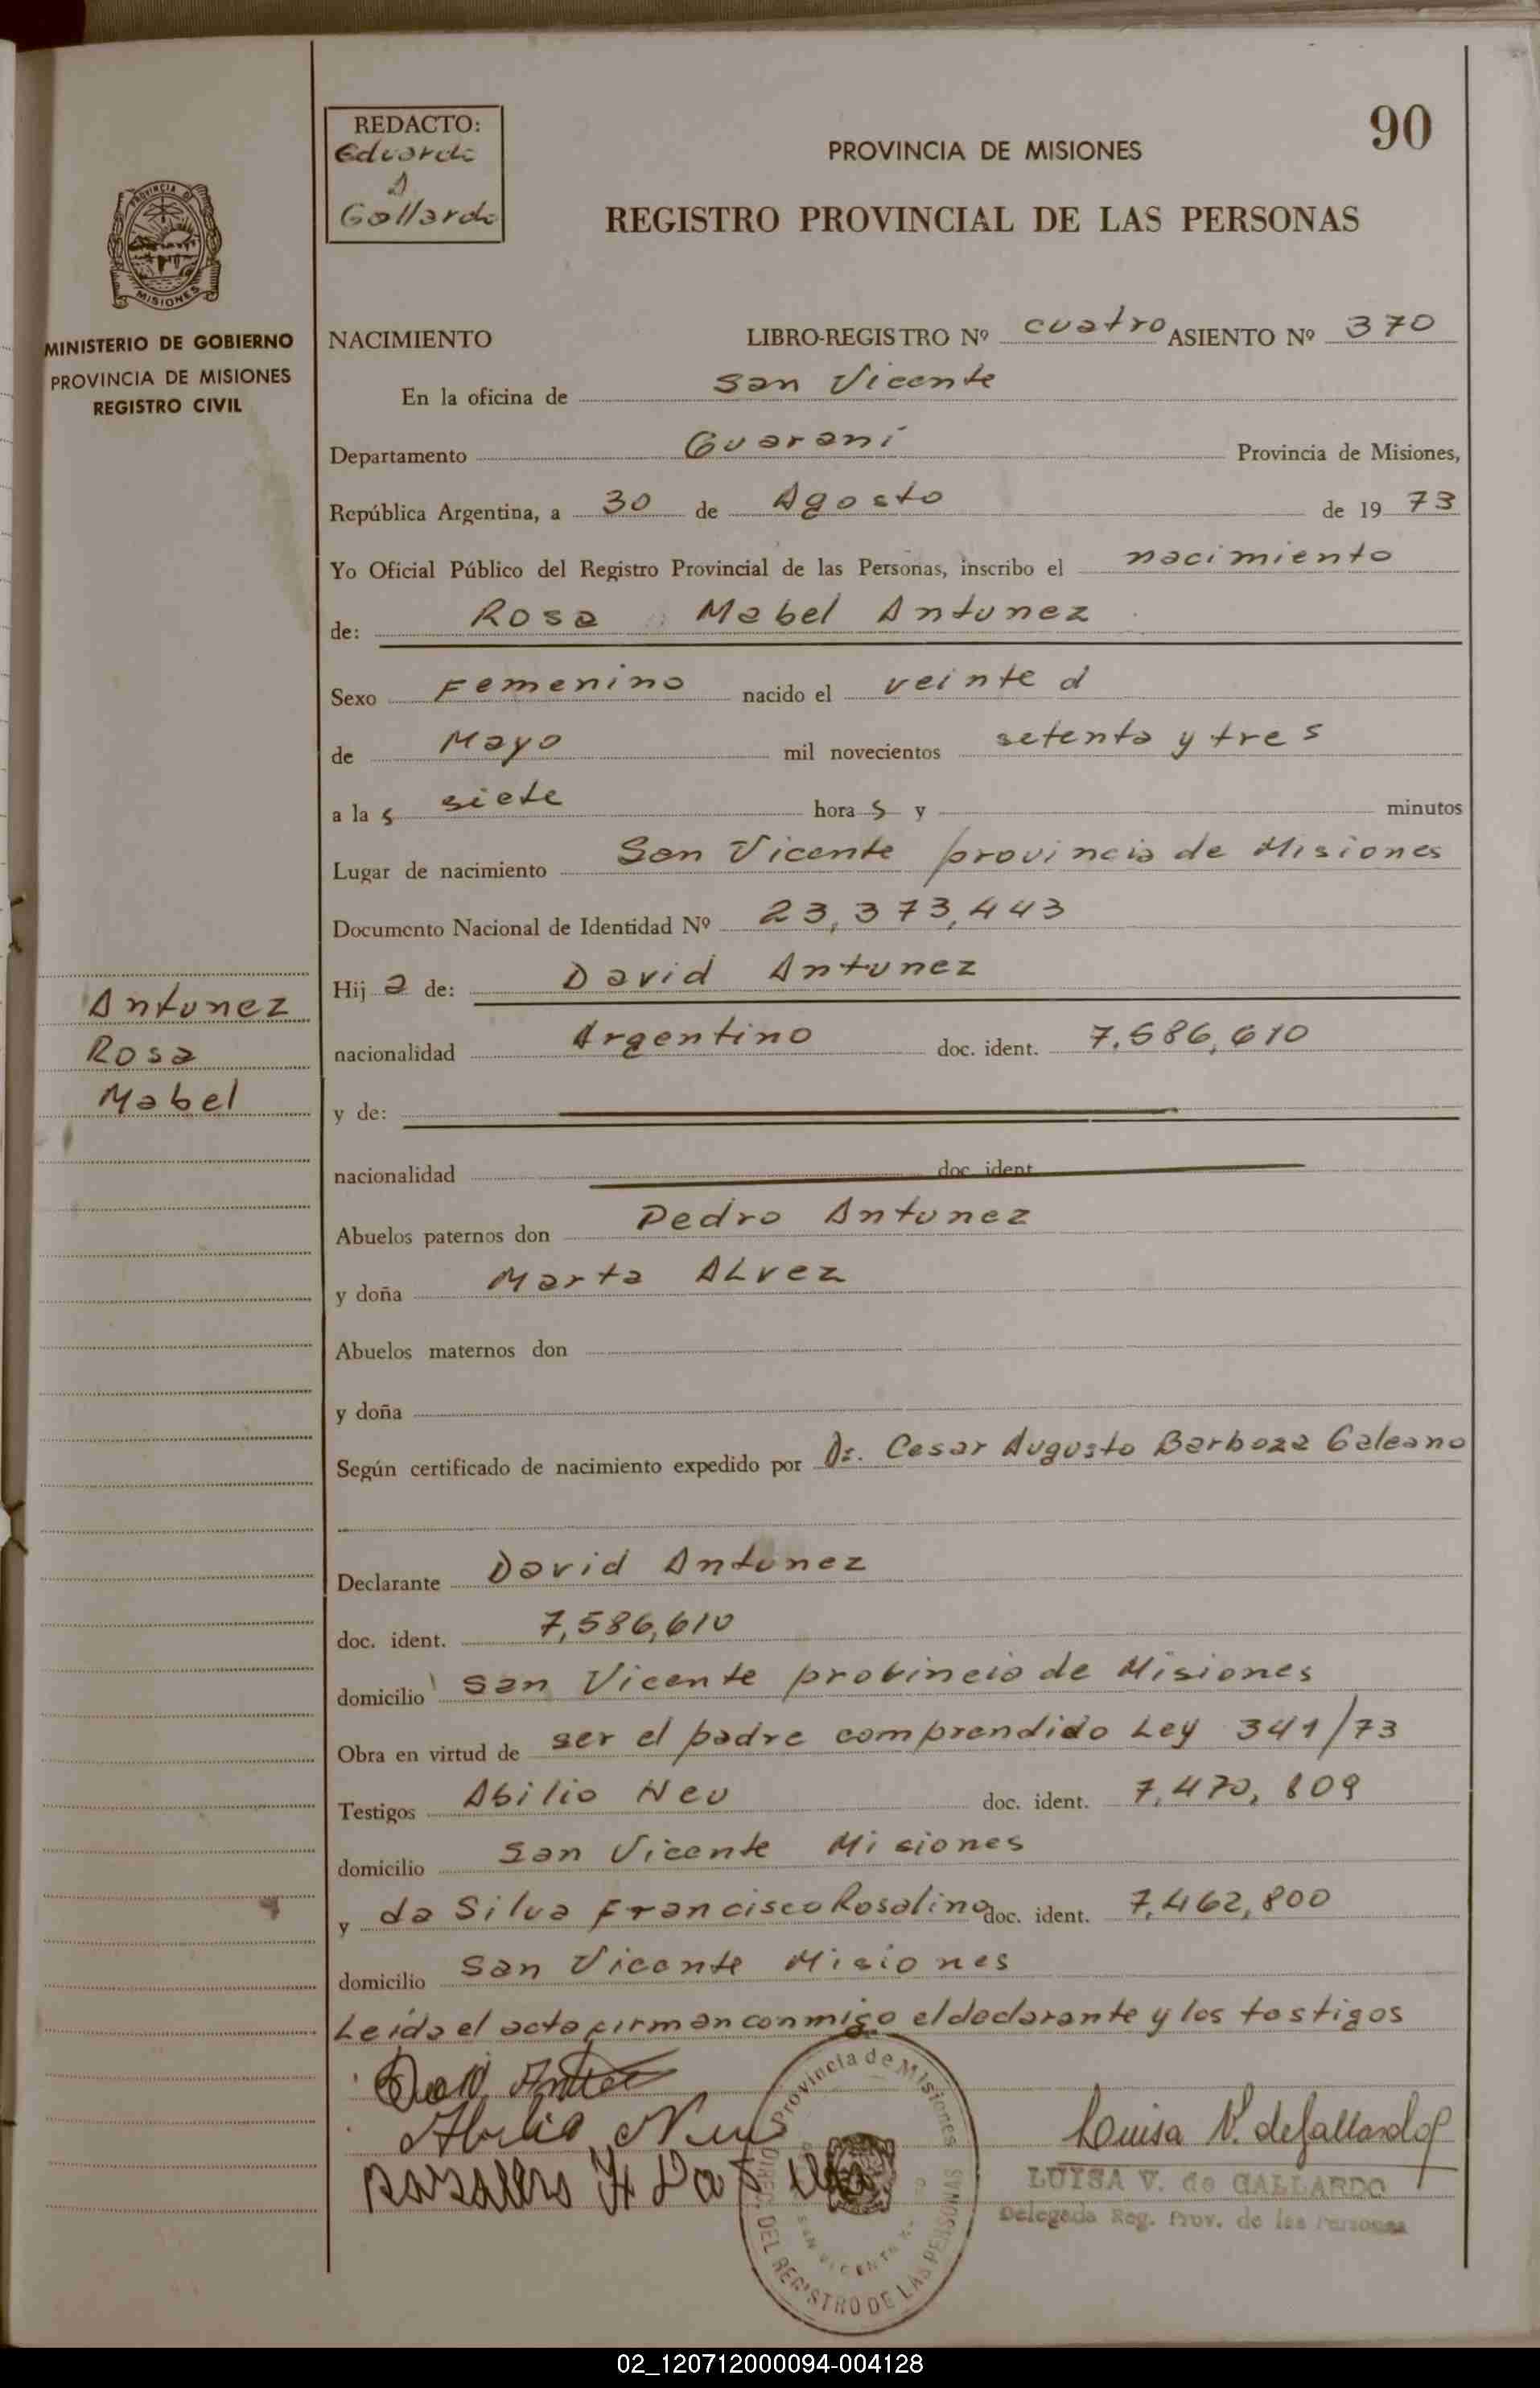 90
REDACTO:
Eduardo
A
Gallardo
PROVINCIA DE MISIONES
REGISTRO PROVINCIAL DE LAS PERSONAS
PROVINCIA DE
MISIONES
MINISTERIO DE GOBIERNO
PROVINCIA DE MISIONES
REGISTRO CIVIL
NACIMIENTO LIBRO-REGISTRO Nº cuatro ASIENTO Nº 370
En la oficina de San Vicente
Departamento Guaraní Provincia de Misiones,
República Argentina, a 30 de Agosto de 19 73
Yo Oficial Público del Registro Provincial de las Personas, inscribo el nacimiento
de: Rosa Mabel Antunez
Sexo Femenino nacido el veinte d
de Mayo mil novecientos setenta y tres
a la s siete hora s y minutos
Lugar de nacimiento San Vicente provincia de Misiones
Documento Nacional de Identidad Nº 23,373,443
Hij a de: David Antunez
Antunez
Rosa
Mabel
nacionalidad Argentino doc. ident. 7.586,610
y de:
nacionalidad doc. ident.
Abuelos paternos don Pedro Antunez
y doña Marta ALvez
Abuelos maternos don
y doña
Según certificado de nacimiento expedido por Dr. Cesar Augusto Barboza Galeano
Declarante David Antunez
doc. ident. 7,586,610
domicilio San Vicente probincia de Misiones
Obra en virtud de ser el padre comprendido Ley 341/73
Testigos Abilio Neu doc. ident. 7,470,809
domicilio San Vicente Misiones
y da Silva Francisco Rosalino doc. ident. 7,462,800
domicilio San Vicente Misiones
Leída el acta firman conmigo el declarante y los testigos
Abilio Neu
Luisa V. de Gallardo
LUISA V. de GALLARDO
Delegada Reg. Prov. de las Personas
Provincia de Misiones
DIREC. DEL REGISTRO DE LAS PERSONAS
SAN VICENTE
02_120712000094-004128